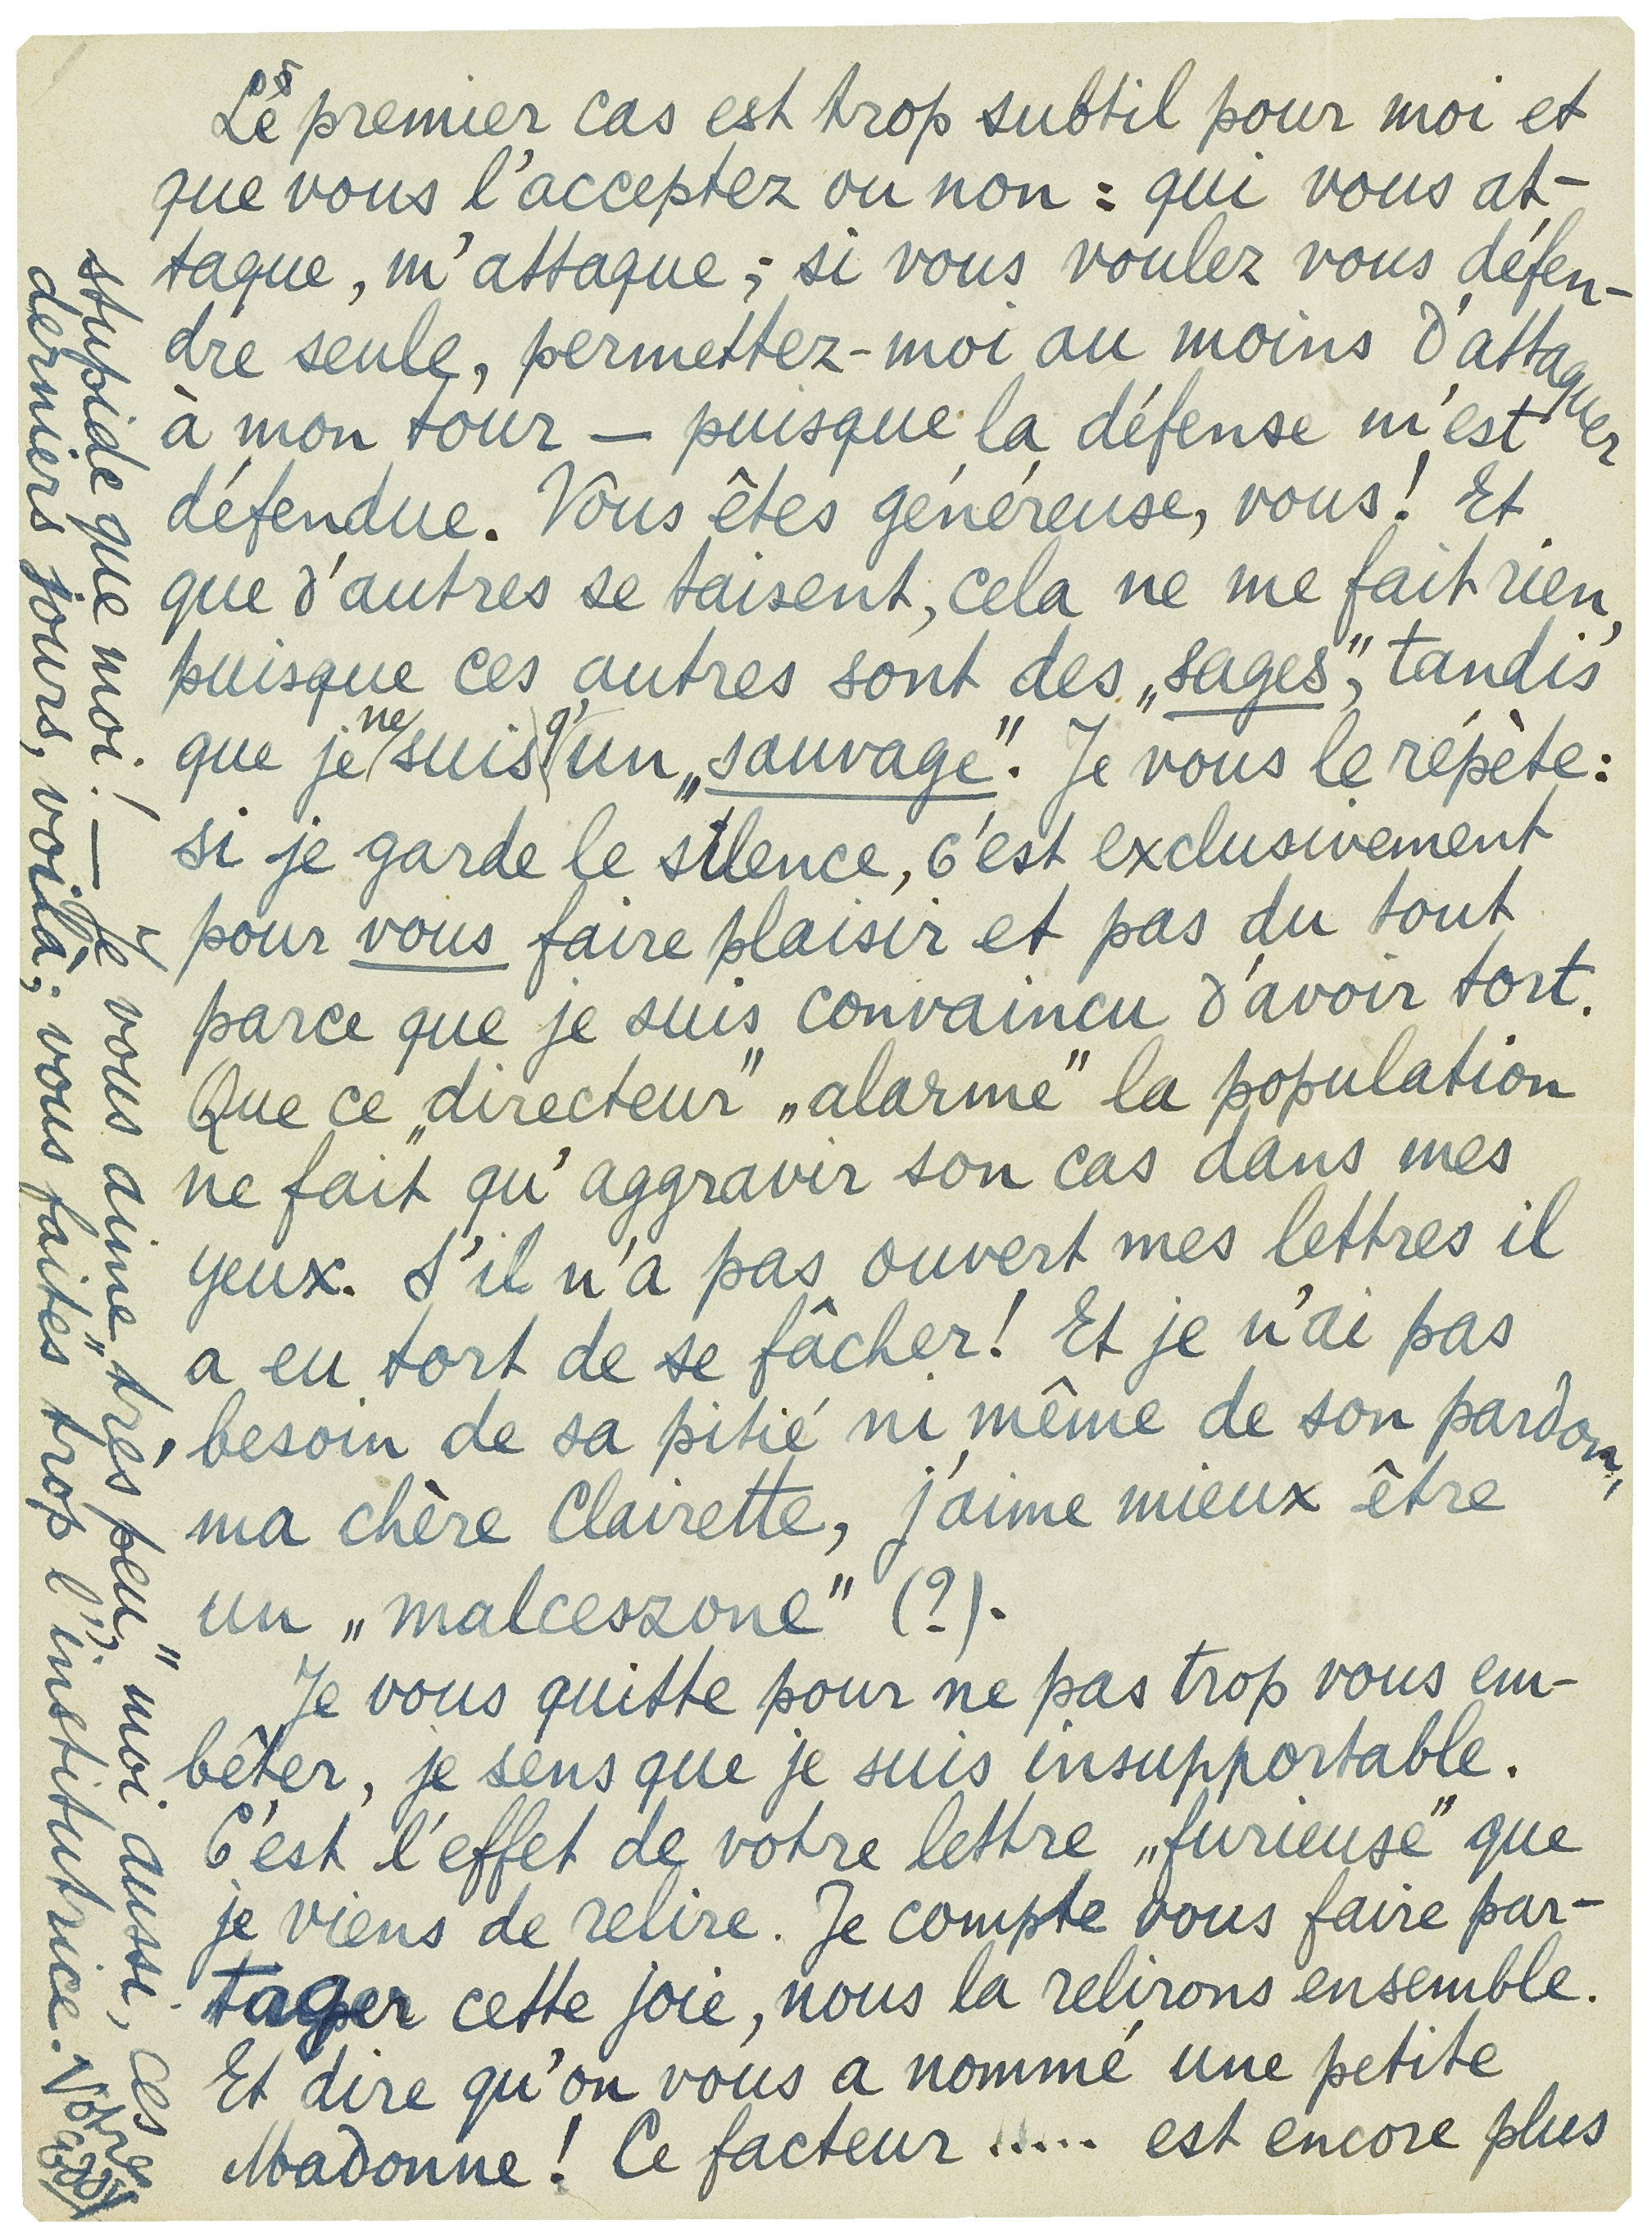 Le premier cas est trop subtil pour moi et
que vous l'acceptez ou non : qui vous at-
taque, m'attaque ; si vous voulez vous défen-
dre seule, permettez-moi au moins d'attaquer
à mon tour — puisque la défense m'est
défendue. Vous êtes généreuse, vous! Et
que d'autres se taisent, cela ne me fait rien,
puisque ces autres sont des „sages", tandis
que je ne suis qu'un „sauvage". Je vous le répète:
si je garde le silence, c'est exclusivement
pour vous faire plaisir et pas du tout
parce que je suis convaincu d'avoir tort.
Que ce „directeur" „alarme" la population
ne fait qu'aggravir son cas dans mes
yeux. S'il n'a pas ouvert mes lettres il
a eu tort de se fâcher! Et je n'ai pas
besoin de sa pitié ni même de son pardon,
ma chère Clairette, j'aime mieux être
un „malceszone" (?).
Je vous quitte pour ne pas trop vous em-
bêter, je sens que je suis insupportable.
C'est l'effet de votre lettre „furieuse" que
je viens de relire. Je compte vous faire par-
tager cette joie, nous la relirons ensemble.
Et dire qu'on vous a nommé une petite
Madonne! Ce facteur ..... est encore plus
stupide que moi! — Je vous aime „très peu", moi aussi, ces
derniers jours, voilà; vous faites trop l'„institutrice. Votre